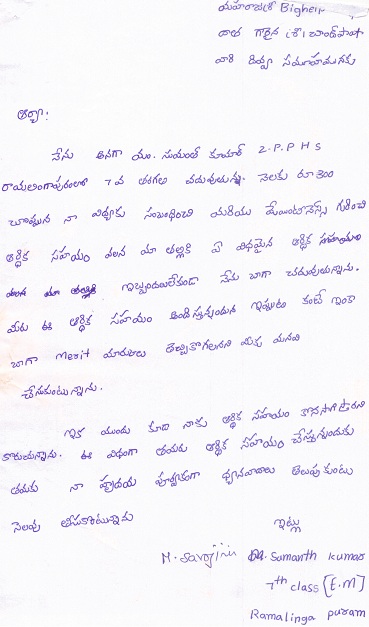 మహారాజశ్రీ Bigheir
దాత గారైన శ్రీ చంద్‌పాషా
వారి దివ్య సముఖమునకు
ఆర్యా!
నేను అనగా యం. సుమంత్ కుమార్ Z.P.P H S
రామలింగాపురంలో 7వ తరగతి చదువుతున్న. నెలకు రూ 300
చొప్పున నా విద్యకు సంబంధించి మరియు మెయింటెనెన్స్ గురించి
ఆర్థిక సహాయం వలన మా తల్లికి ఏ విధమైన ఆర్థిక సహాయం
వలన మా తల్లికి ఇబ్బందులులేకుండా నేను బాగా చదువుతున్నాను.
మీరు ఈ ఆర్థిక సహాయం అందిస్తున్నందున ఇప్పుటు కంటే ఇంకా
బాగా merit మార్కులు తెచ్చుకొగలనని మీకు మనవి
చేసుకుంటున్నాను.
ఇక ముందు కూడ నాకు ఆర్థిక సహాయం కొనసాగుతారని
కోరుచున్నాను. ఈ విధంగా తమరు ఆర్థిక సహాయం చేస్తున్నందుకు
తమకు నా హృదయ పూర్వకంగా ధన్యవాదాలు తెలుపుకుంటు
సెలవు తీసుకొంటున్నాను
ఇట్లు
M. Sarojini M. Sumanth kumar
7th class [E.M]
Ramalinga puram